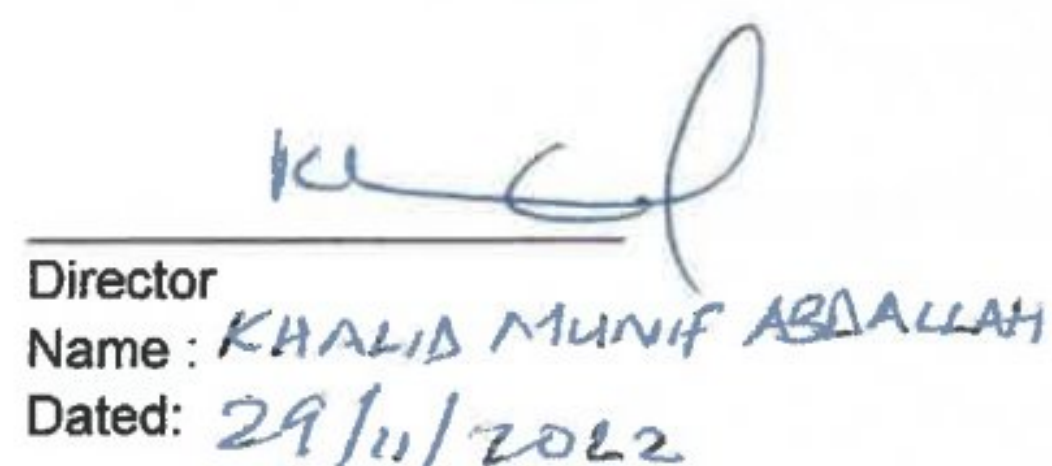 Director
Name : KHALID MUNIF ABDALLAH
Dated: 29/11/2022